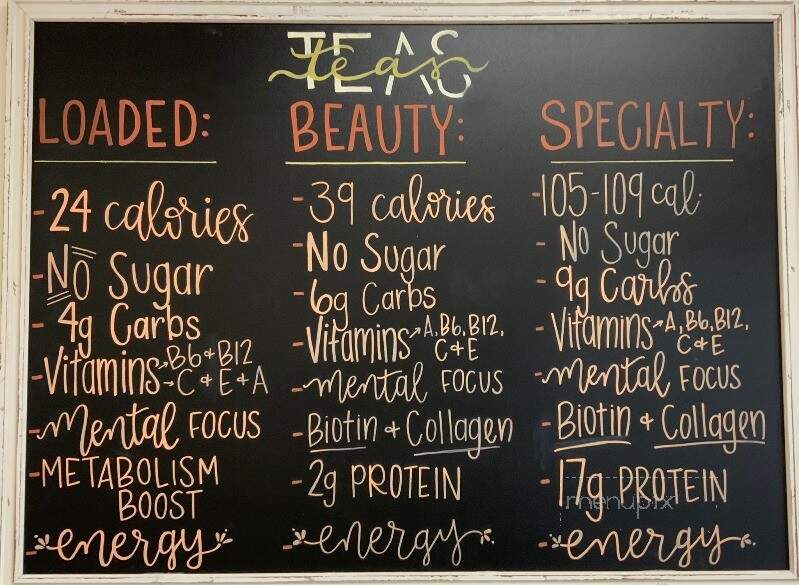 TEAS
teas
LOADED:
- 24 calories
- NO Sugar
- 4g Carbs
- Vitamins → B6 & B12
→ C & E & A
- mental FOCUS
- METABOLISM
BOOST
- energy
BEAUTY:
- 39 calories
- No Sugar
- 6g Carbs
- Vitamins → A, B6, B12,
C & E
- mental FOCUS
- Biotin & Collagen
- 2g PROTEIN
- energy
SPECIALTY:
- 105-109 cal.
- No Sugar
- 9g Carbs
- Vitamins → A, B6, B12,
C & E
- mental FOCUS
- Biotin & Collagen
- 17g PROTEIN
menupix
- energy